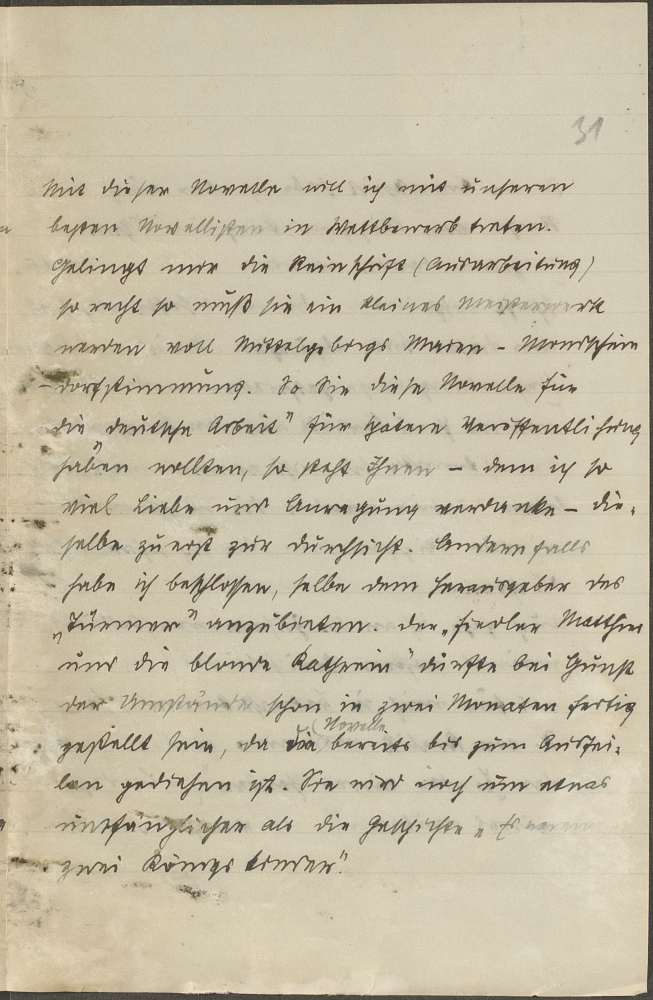 31
Mit dieser Novelle will ich mit unseren
besten Novellisten in Wettbewerb treten.
Gelingt mir die Reinschrift (Ausarbeitung)
so recht so muß sie ein kleines Meisterwerk
werden voll Mittelgebirgs Maien - Mondschein
- dorfstimmung. So Sie diese Novelle für
die deutsche Arbeit" für spätere Veröffentlichung
haben wollten, so steht Ihnen - dem ich so
viel Liebe und Anregung verdanke - die-
selbe zuerst zur Durchsicht. Andernfalls
habe ich beschlossen, selbe dem Herausgeber des
„Türmer" anzubieten. Der „Fiedler Matthies
und die blonde Kathrein" dürfte bei Gunst
der Umstände schon in zwei Monaten fertig
(Novelle
gestellt sein, da die bereits bis zum Ausfei-
len gediehen ist. Sie wird noch um etwas
umfänglicher als die Geschichte „Es waren
zwei Königskinder".